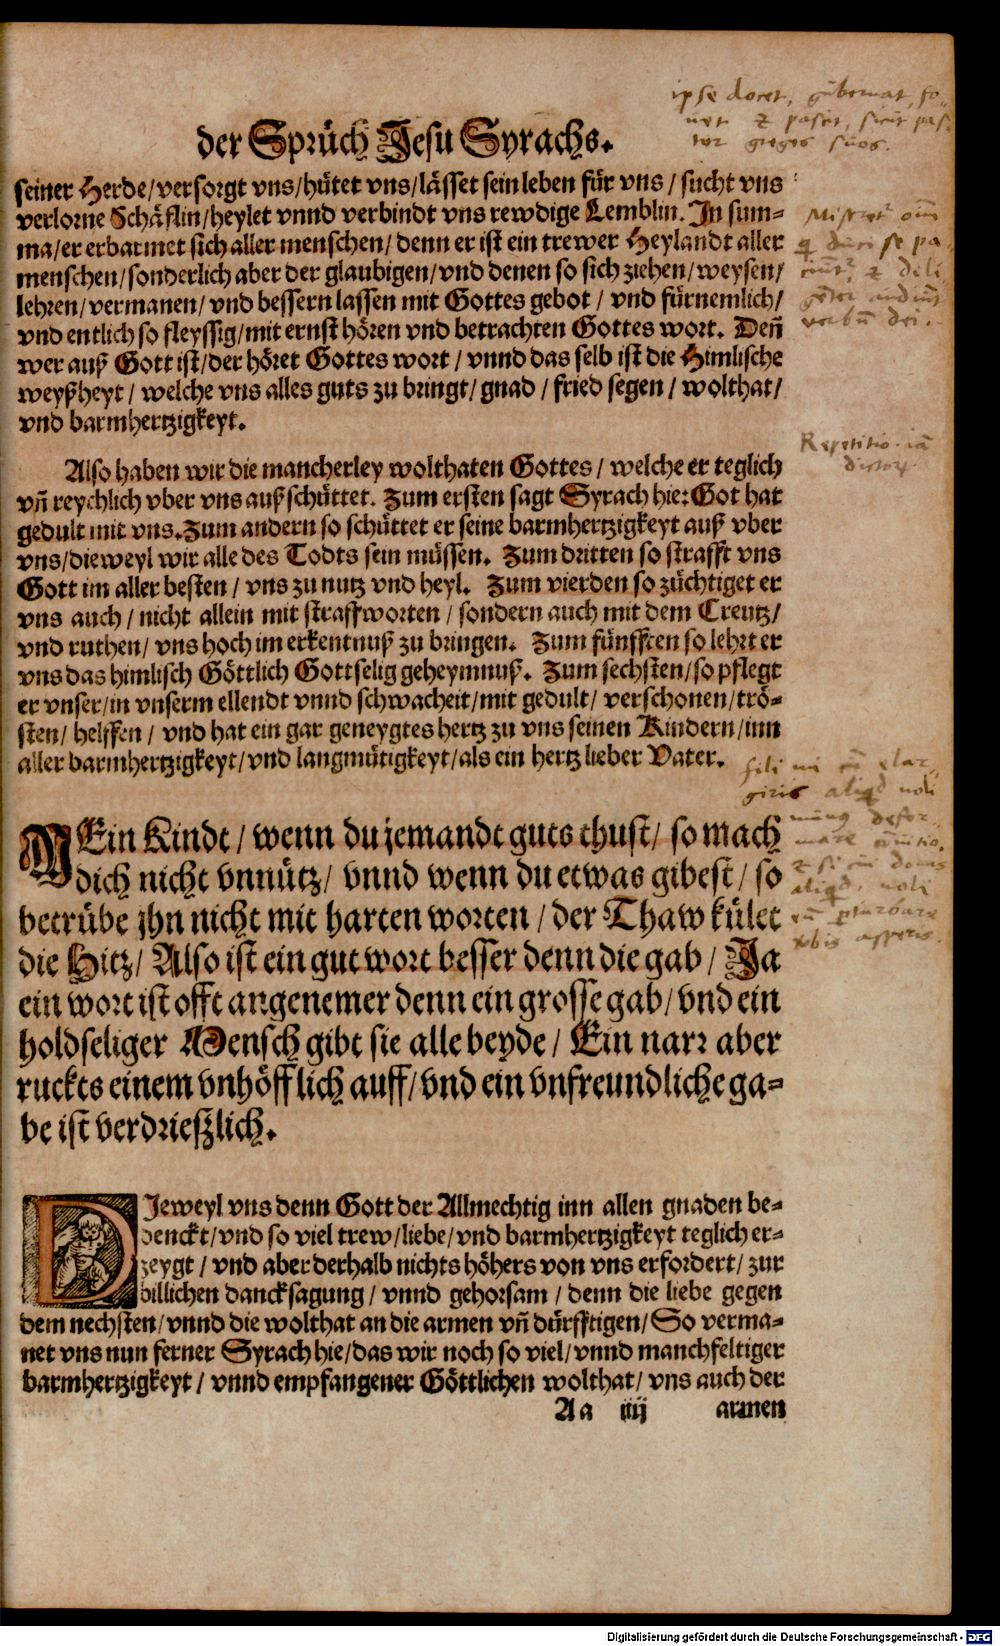 der Sprüch Jesu Syrachs.
ipse docet, gubernat, fo-
vet & pascit, sicut pas-
tor greges suos.
seiner Herde/versorgt vns/hütet vns/lässet sein leben für vns/ sucht vns
verlorne Schäflin/heylet vnnd verbindt vns rewdige Lemblin. In sum-
ma/er erbarmet sich aller menschen/denn er ist ein trewer Heylandt aller
menschen/sonderlich aber der glaubigen/vnd denen so sich ziehen/weysen/
lehren/vermanen/vnd bessern lassen mit Gottes gebot/ vnd fürnemlich/
vnd entlich so fleyssig/mit ernst hören vnd betrachten Gottes wort. Deñ
wer auß Gott ist/der höret Gottes wort/ vnnd das selb ist die Himlische
weyßheyt/ welche vns alles guts zu bringt/gnad/ fried segen/ wolthat/
vnd barmhertzigkeyt.
verbũ dei.
Repetitio iã
dictorꝝ
Also haben wir die mancherley wolthaten Gottes/ welche er teglich
vñ reychlich vber vns außschüttet. Zum ersten sagt Syrach hie: Got hat
gedult mit vns. Zum andern so schüttet er seine barmhertzigkeyt auß vber
vns/dieweyl wir alle des Todts sein müssen. Zum dritten so strafft vns
Gott im aller besten/ vns zu nutz vnd heyl. Zum vierden so züchtiget er
vns auch/ nicht allein mit straffworten/ sondern auch mit dem Creutz/
vnd ruthen/ vns hoch im erkentnuß zu bringen. Zum fünfften so lehrt er
vns das himlisch Göttlich Gottselig geheymnuß. Zum sechsten/so pflegt
er vnser/in vnserm ellendt vnnd schwacheit/mit gedult/ verschonen/trö-
sten/ helffen/ vnd hat ein gar geneygtes hertz zu vns seinen Kindern/inn
aller barmhertzigkeyt/vnd langmütigkeyt/als ein hertz lieber Vater.
MEin Kindt/ wenn du jemandt guts thust/ so mach
dich nicht vnnütz/ vnnd wenn du etwas gibest/ so
betrübe jhn nicht mit harten worten/ der Thaw kület
die Hitz/ Also ist ein gut wort besser denn die gab/ Ja
ein wort ist offt angenemer denn ein grosse gab/vnd ein
holdseliger Mensch gibt sie alle beyde/ Ein narr aber
ruckts einem vnhöfflich auff/vnd ein vnfreundliche ga-
be ist verdrießlich.
DJeweyl vns denn Gott der Allmechtig inn allen gnaden be-
denckt/vnd so viel trew/liebe/vnd barmhertzigkeyt teglich er-
zeygt/ vnd aber derhalb nichts höhers von vns erfordert/ zur
billichen dancksagung/ vnnd gehorsam/ denn die liebe gegen
dem nechsten/vnnd die wolthat an die armen vñ dürfftigen/ So verma-
net vns nun ferner Syrach hie/das wir noch so viel/vnnd manchfeltiger
barmhertzigkeyt/ vnnd empfangener Göttlichen wolthat/ vns auch der
Aa iiij armen
Digitalisierung gefördert durch die Deutsche Forschungsgemeinschaft - DFG